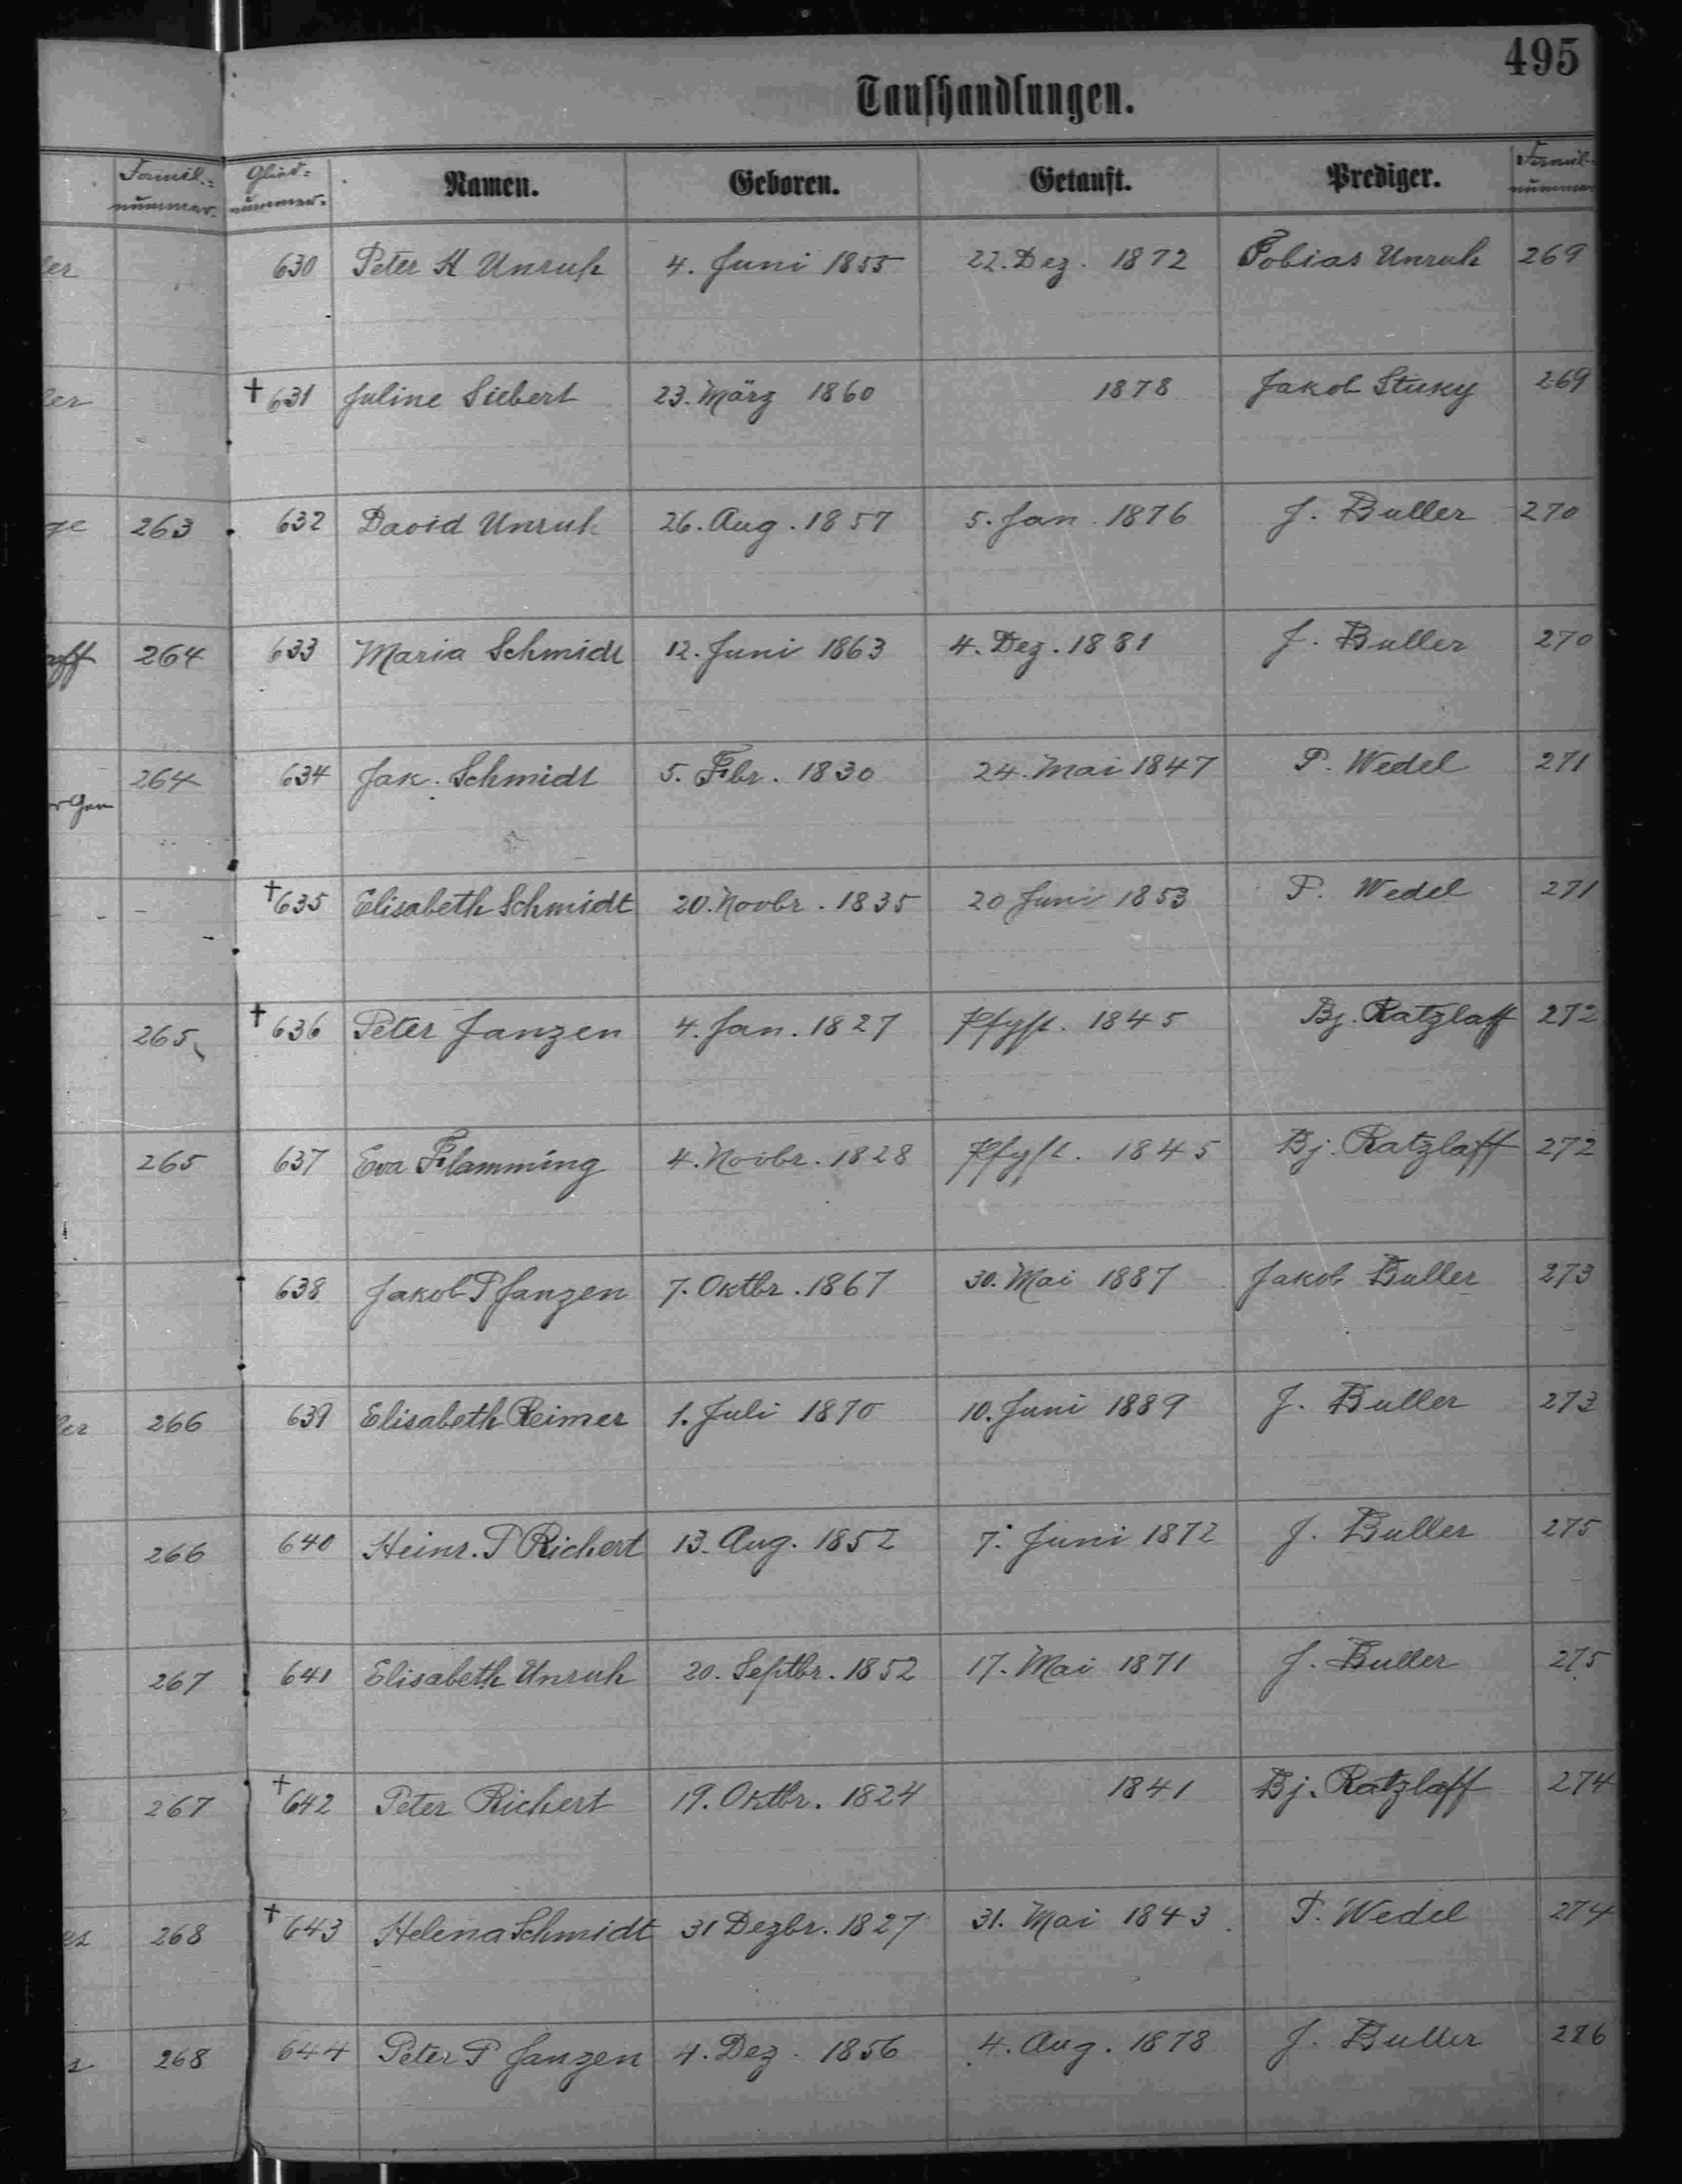 495
Taufhandlungen.
Famil.= nummer. Glied= nummer. Namen. Geboren. Getauft. Prediger. Famil= nummer
ler 630 Peter H Unruh 4. Juni 1855 22. Dez. 1872 Tobias Unruh 269
ler † 631 Juline Siebert 23. März 1860 1878 Jakob Stuky 269
ge 263 632 David Unruh 26. Aug. 1857 5. Jan. 1876 J. Buller 270
aff 264 633 Maria Schmidt 12. Juni 1863 4. Dez. 1881 J. Buller 270
264 634 Jak. Schmidt 5. Febr. 1830 24. Mai 1847 P. Wedel 271
- - † 635 Elisabeth Schmidt 20. Novbr. 1835 20 Juni 1853 P. Wedel 271
265 † 636 Peter Janzen 4. Jan. 1827 Pfgst. 1845 Bj. Ratzlaff 272
265 637 Eva Flamming 4. Novbr. 1828 Pfgst. 1845 Bj. Ratzlaff 272
638 Jakob P Janzen 7. Oktbr. 1867 30. Mai 1887 Jakob Buller 273
ler 266 639 Elisabeth Reimer 1. Juli 1870 10. Juni 1889 J. Buller 273
266 640 Heinr. P Richert 13. Aug. 1852 7. Juni 1872 J. Buller 275
267 641 Elisabeth Unruh 20. Septbr. 1852 17. Mai 1871 J. Buller 275
267 † 642 Peter Richert 19. Oktbr. 1824 1841 Bj. Ratzlaff 274
es 268 † 643 Helena Schmidt 31 Dezbr. 1827 31. Mai 1843. P. Wedel 274
s 268 644 Peter P Janzen 4. Dez. 1856 4. Aug. 1878 J. Buller 276